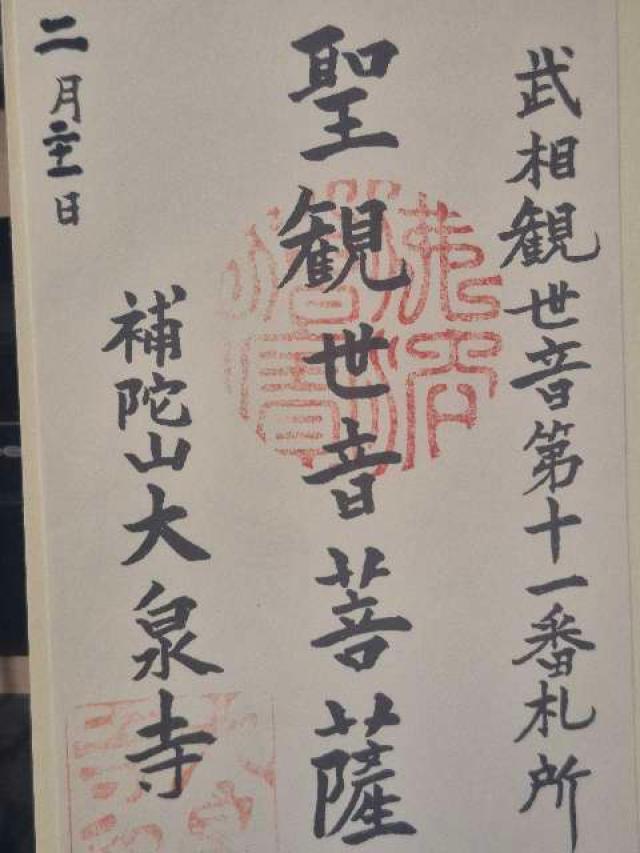 武相観世音第十一番札所
聖観世音菩薩
補陀山大泉寺
二月二十一日